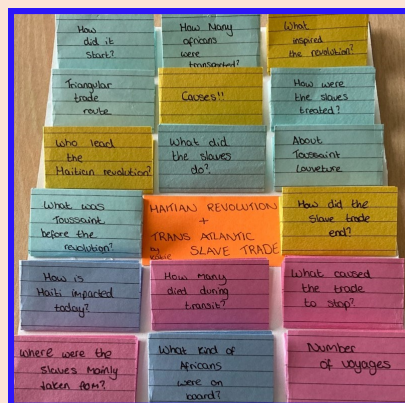 How
did it
start?
How Many
africans
were
transported?
What
inspired
the revolution?
Triangular
trade
route
Causes!!
How were
the slaves
treated?
Who lead
the
Haitian revolution?
What did
the slaves
do?
About
Toussaint
Louveture
What was
Toussaint
before the
revolution?
HAITIAN REVOLUTION
+
TRANS ATLANTIC
by Katie SLAVE TRADE
How did the
slave trade
end?
How is
Haiti impacted
today?
How Many
died during
transit?
What caused
the trade
to stop?
Where were the
slaves mainly
taken from?
What kind of
Africans
were on
board?
Number
of voyages